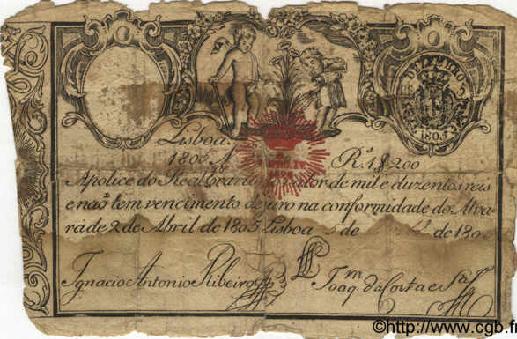 1805
Lisboa
180 A Rs 1$200
Apolice do Real Erario valor de mil e duzentos reis
e não tem vencimento de juro na conformidade do Alva
rá de 2 de Abril de 1805 Lisboa de de 180
Ignacio Antonio Ribeiro
Joaqm da Costa e Sa
©http://www.cgb.fr